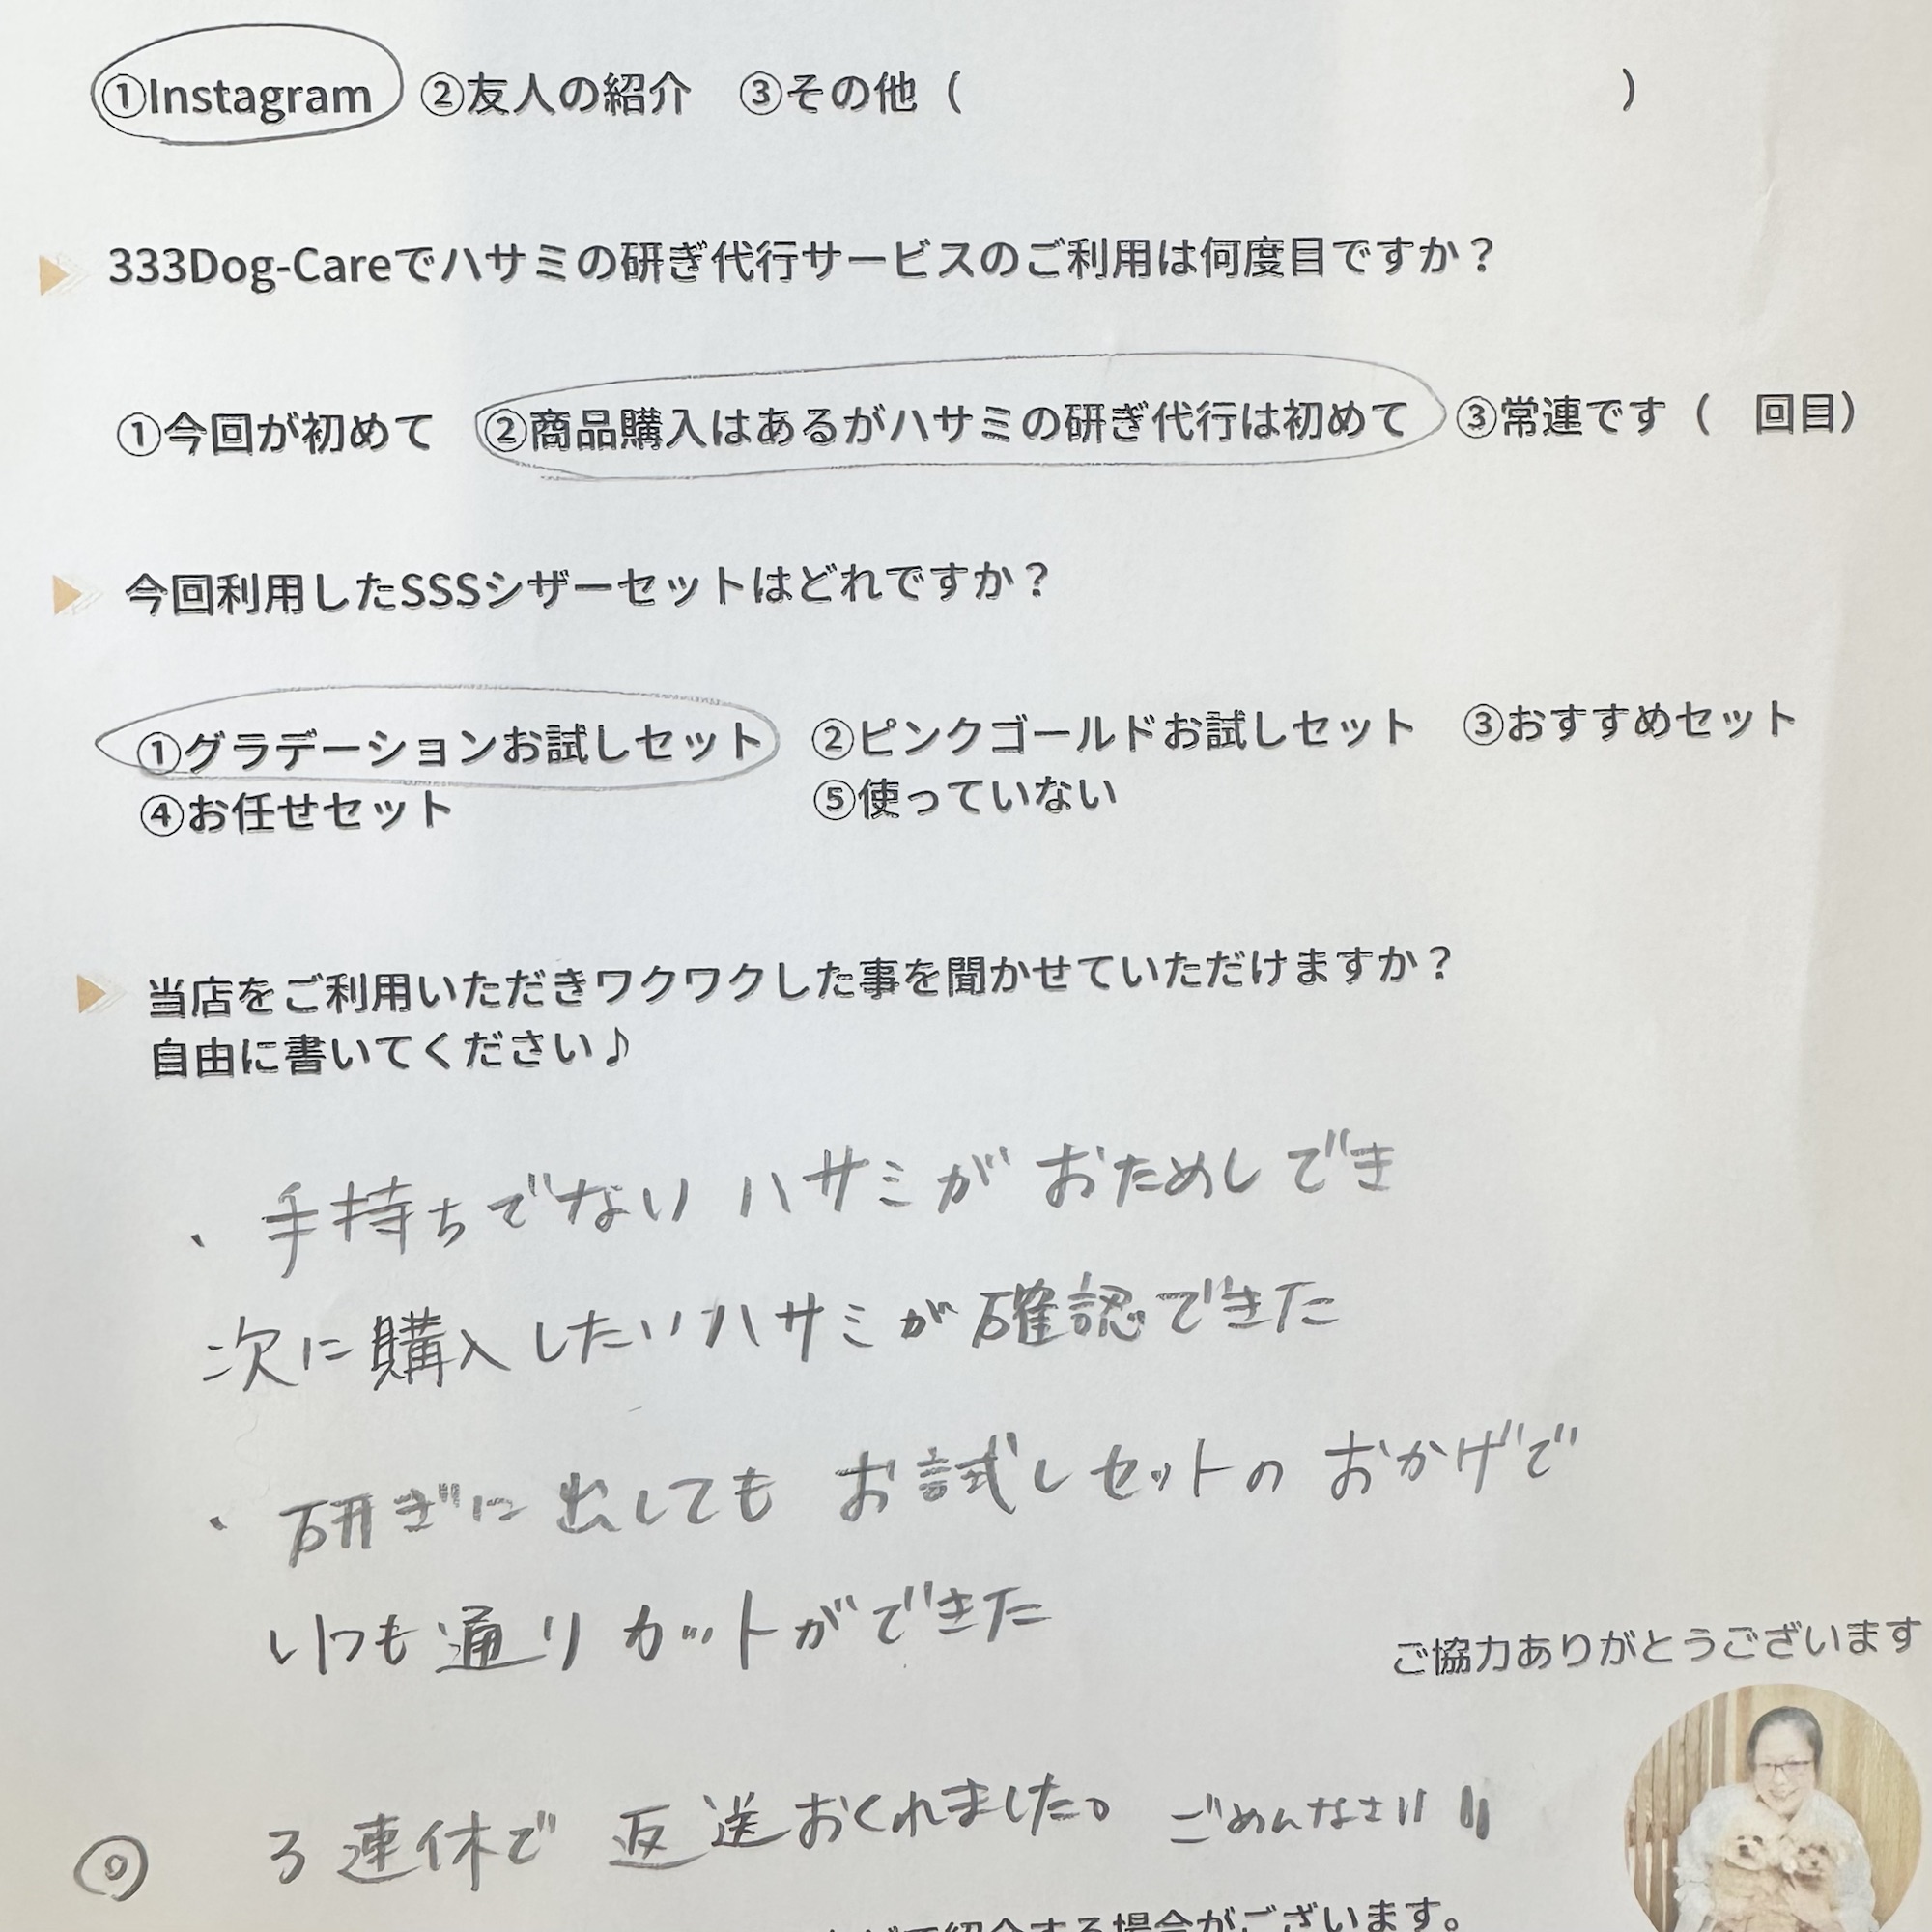 ①Instagram ②友人の紹介 ③その他（ ）
333Dog-Careでハサミの研ぎ代行サービスのご利用は何度目ですか？
①今回が初めて ②商品購入はあるがハサミの研ぎ代行は初めて ③常連です（ 回目）
今回利用したSSSシザーセットはどれですか？
①グラデーションお試しセット ②ピンクゴールドお試しセット ③おすすめセット
④お任せセット ⑤使っていない
当店をご利用いただきワクワクした事を聞かせていただけますか？
自由に書いてください♪
・手持ちでない ハサミが おためしでき
次に購入したいハサミが確認できた
・研ぎに出しても お試しセットの おかげで
いつも通りカットができた
ご協力ありがとうございます
3連休で 返送おくれました。ごめんなさい
紹介する場合がございます。